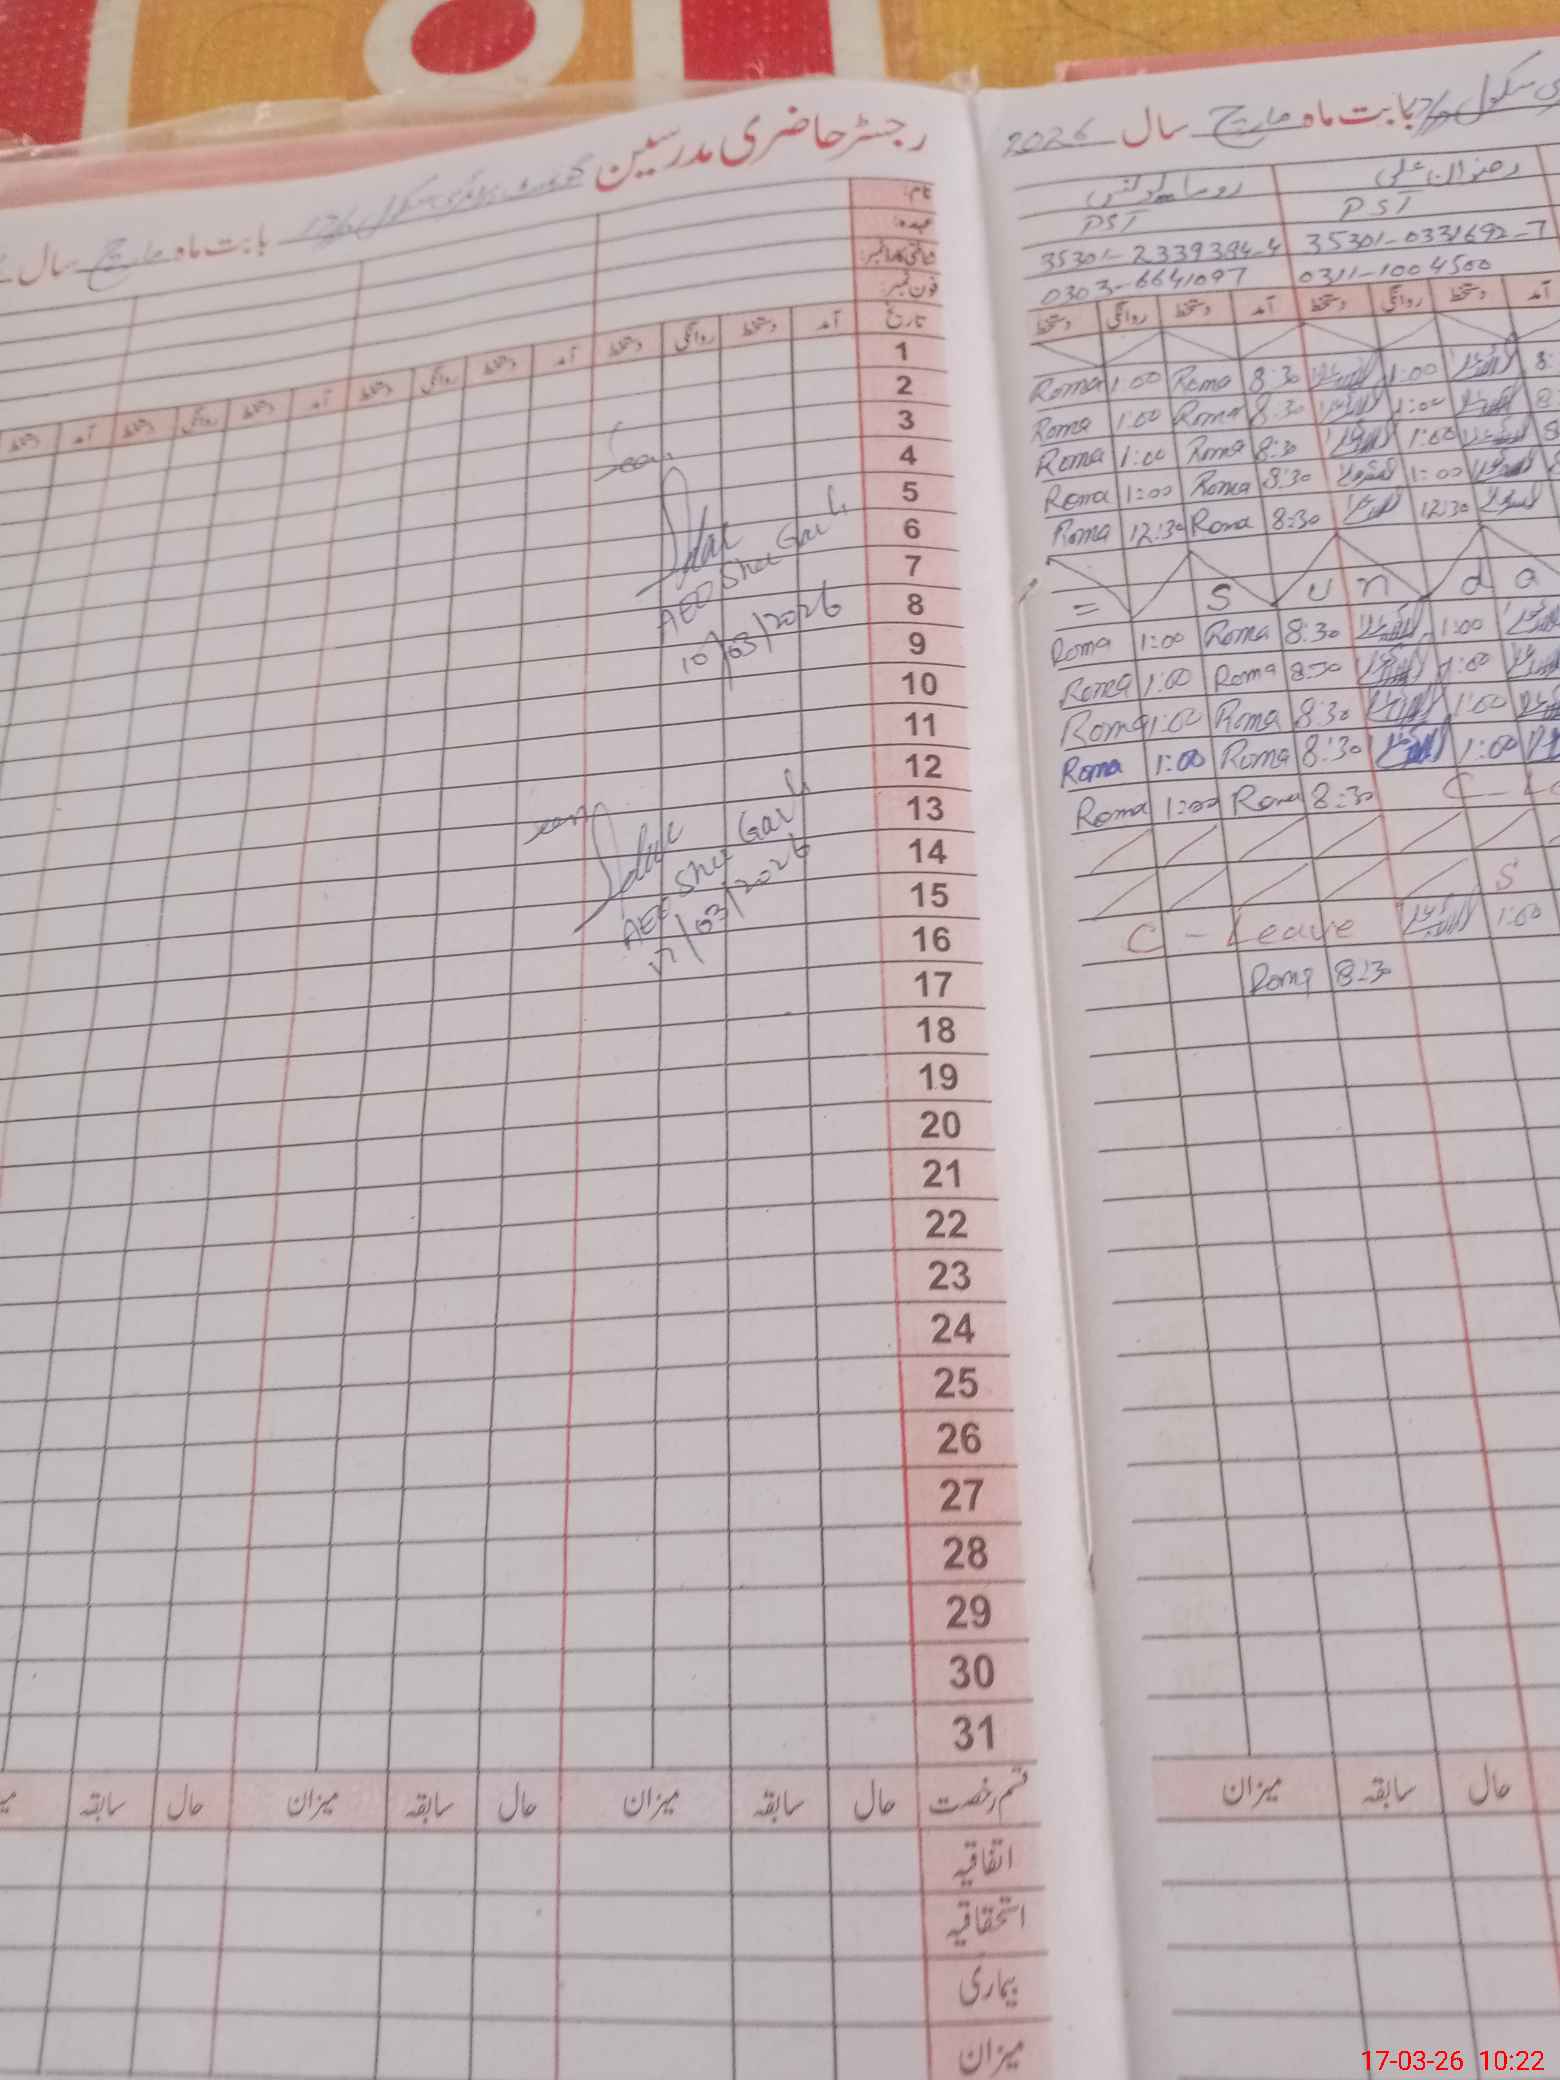 رجسٹر حاضری مدرسین
بابت ماہ مارچ سال
نام:
عہدہ:
شناختی کارڈ نمبر:
فون نمبر:
تاریخ آمد دستخط روانگی دستخط آمد دستخط روانگی دستخط آمد دستخط روانگی دستخط آمد دستخط
1
2
3
4
Seen
5
6
AEO Sher Garh
7
8
10/03/2026
9
10
11
12
13
Seen
14
AEO Sher Garh
15
17/03/2026
16
17
18
19
20
21
22
23
24
25
26
27
28
29
30
31
قسم رخصت حال سابقہ میزان حال سابقہ میزان حال سابقہ
اتفاقیہ
استحقاقیہ
بیماری
میزان
سکول بابت ماہ مارچ سال 2026
رضوان علی
PST PST
35301-2339394-4 35301-0331692-7
0303-6641097 0311-1004500
آمد دستخط روانگی دستخط آمد دستخط روانگی دستخط
Roma 1:00 Roma 8:30 1:00 8:
Roma 1:00 Roma 8:30 1:00 8
Roma 1:00 Roma 8:30 1:00 8
Roma 1:00 Roma 8:30 1:00
Roma 12:30 Roma 8:30 12:30
= S u n d a
Roma 1:00 Roma 8:30 1:00
Roma 1:00 Roma 8:30 1:00
Roma 1:00 Roma 8:30 1:00
Roma 1:00 Roma 8:30 1:00
Roma 1:00 Roma 8:30 C-Le
S
C - Leave 1:00
Roma 8:30
حال سابقہ میزان
17-03-26 10:22